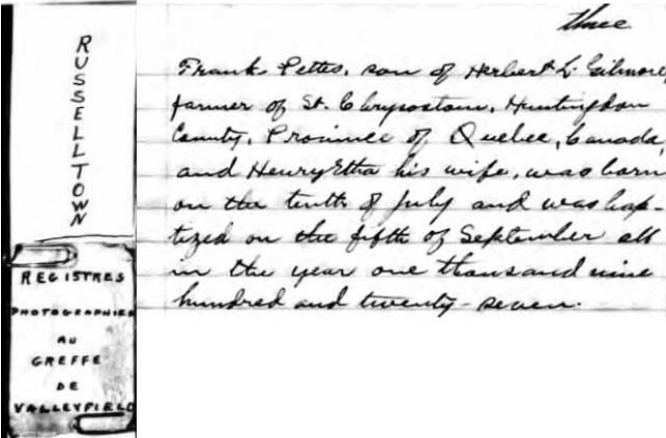 RUSSELLTOWN
REGISTRES
PHOTOGRAPHIES
AU
GREFFE
DE
VALLEYFIELD
three
Frank Pettes, son of Herbert L. Gilmore,
farmer of St. Chrysostom, Huntingdon
County, Province of Quebec, Canada,
and HenryEtta his wife, was born
on the tenth of July and was bap-
tized on the fifth of September all
in the year one thousand nine
hundred and twenty-seven.